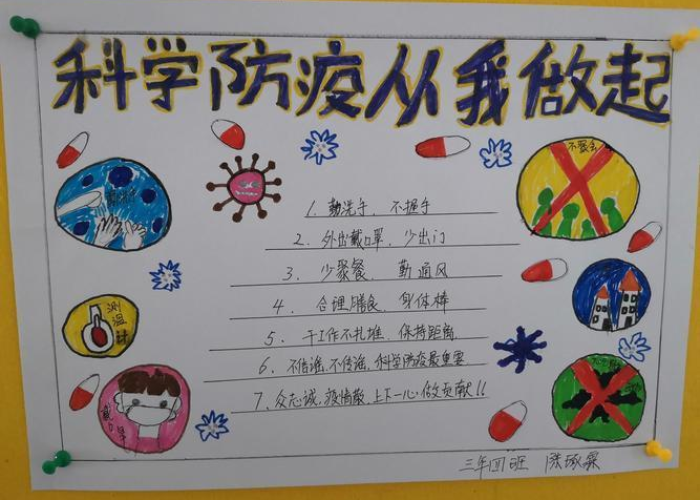 科学防疫从我做起
不聚会
1、勤洗手、不握手
2、外出戴口罩、少出门
3、少聚餐 勤通风
4、合理膳食、身体棒
5、干工作不扎堆、保持距离
6、不信谣、不传谣、科学防疫最重要
7、众志诚、疫情散、上下一心、做贡献!!
测温
戴口罩
三年四班